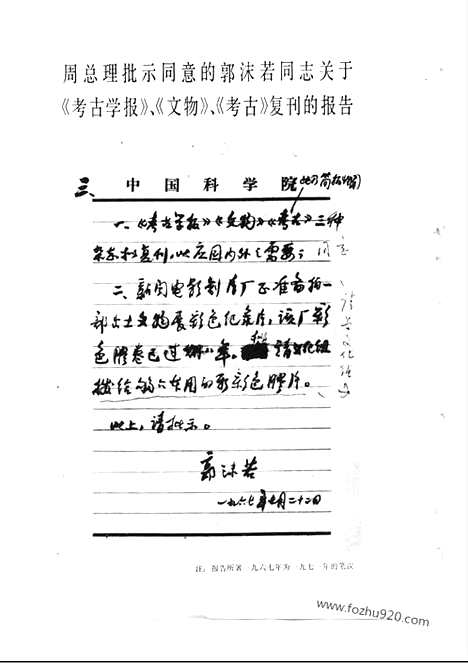 周总理批示同意的郭沫若同志关于
《考古学报》、《文物》、《考古》复刊的报告
三、中国科学院
一、《考古学报》《文物》《考古》三种
杂志拟复刊,以应国内外之需要;
二、新闻电影制片厂正准备拍一
部出土文物展彩色纪录片,该厂彩
色胶卷已过期八年。请文化组
拨给够六本用的新彩色胶片。
以上,请批示。
郭沫若
一九六七年七月二十二日
注:报告所署一九六七年为一九七一年的笔误
www.fozhu920.com